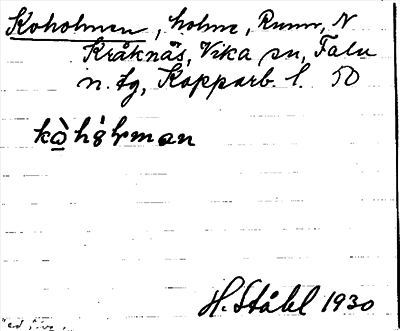 Koholmen, holme, Runn, N
Kråknäs, Vika sn, Falu
n. tg, Kopparb. l. 50
H. Ståhl 1930